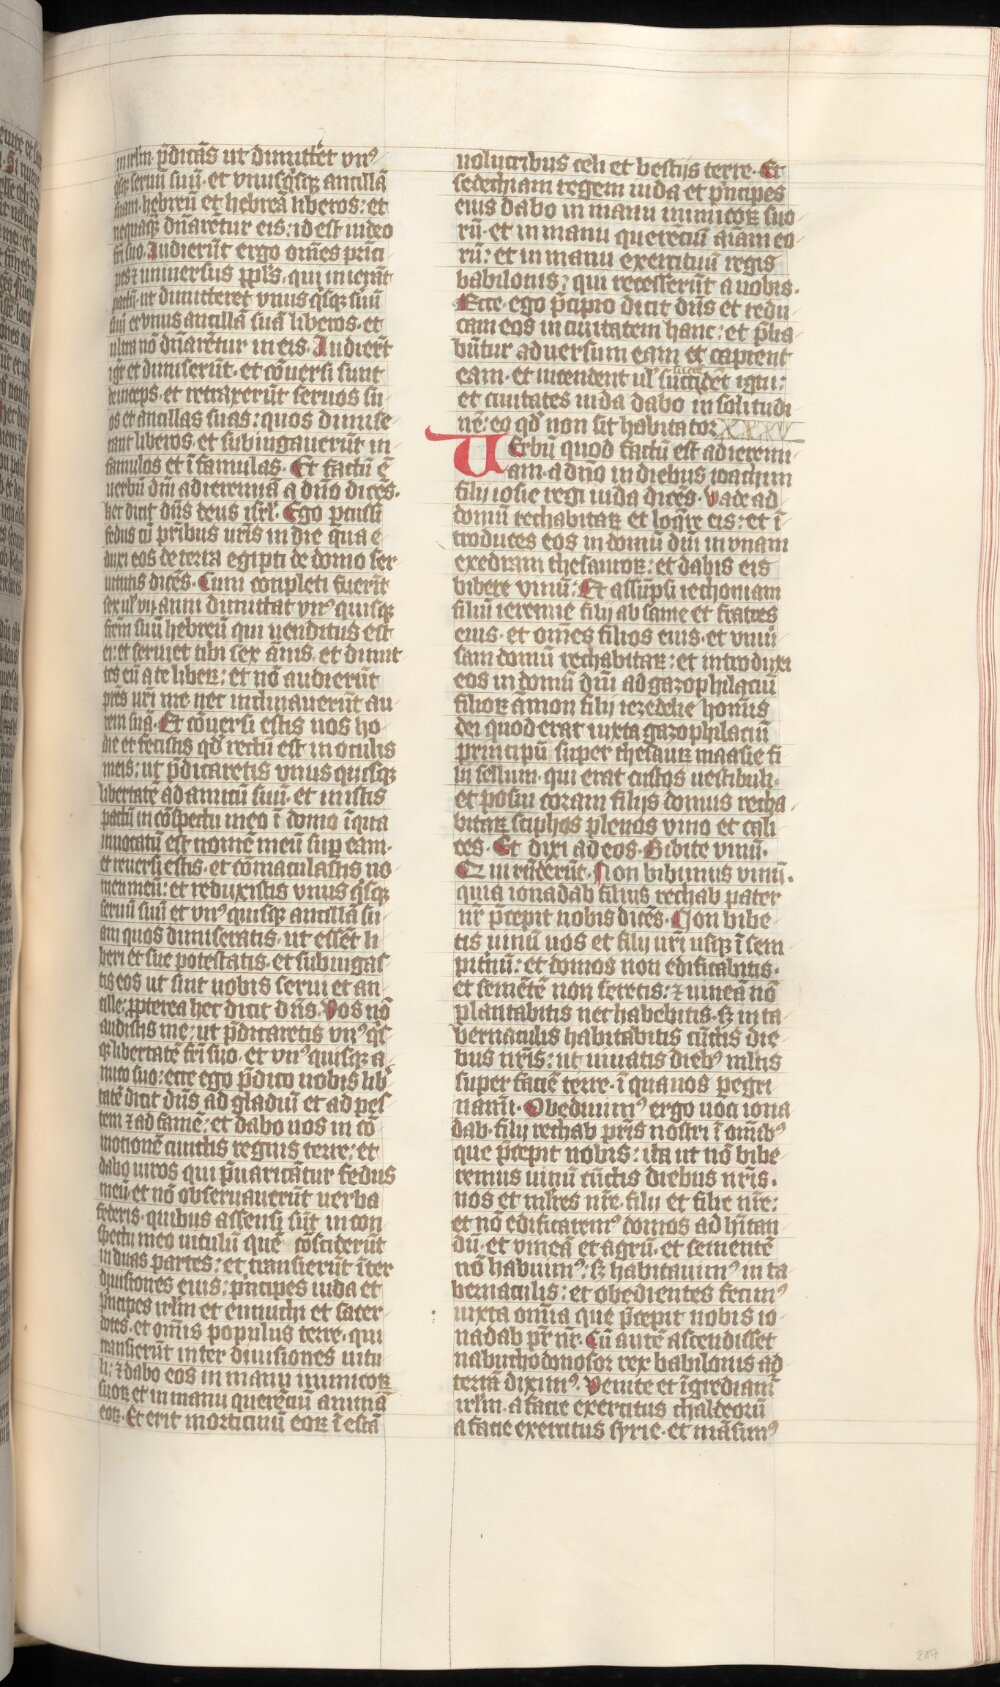 in irlm p̄dicās ut dimittēt vnꝰ
qsqꝫ seruū suū· et vnusqsqꝫ ancillā
suam· hebreū et hebreā liberos: et
nequaqꝫ dn̄arētur eis: id est iudeo
fr̄i suo. Audierūt ergo om̄es prīci
pes ⁊ uniuersus pp̄ls, qui inierāt
pactū· ut dimitteret vnus qsqꝫ suū
suū et vnus ancillā suā liberos· et
ultra nō dn̄arētur in eis. Audierēt
igr̄ et dimiserūt· et cōuersi sunt
deinceps· et retraxerūt seruos su
os et ancillas suas: quos dimise
rant liberos, et subiugauerūt in
famulos et ī famulas. Et factū ē
uerbū dn̄i ad ieremiā a dn̄o dicēs.
hec dicit dn̄s deus isrl. Ego pcussi
fedus cū pr̄ibus ur̄is in die qua e
duxi eos de terra egipti de domo ser
uitutis dicēs. Cum completi fuerīt
sex ul̄ vij anni dimittat vnꝰ quisqꝫ
frēm suū hebreū qui uenditus est
ei: et seruiet tibi sex ānis, et dimit
tes eū a te liberꝫ: et nō audierūt
pr̄es ur̄i me nec inclinauerūt au
rem suā. Et cōuersi estis uos ho
die et fecistis qd̄ rectū est in oculis
meis: ut p̄dicaretis vnus quisqꝫ
libertatē ad amicū suū· et inistis
pactū in cōspectu meo ī domo ī qua
inuocatū est nomē meū sup eam·
et reuersi estis· et cōmaculastis no
men meū: et reduxistis vnus qsqꝫ
seruū suū et vnꝰ quisqꝫ ancillā su
am quos dimiseratis· ut essēt li
beri et sue potestatis· et subiugas
tis eos ut sint uobis serui et an
cille: ꝓpterea hec dicit dn̄s. Vos nō
audistis me: ut p̄dicaretis vnꝰ qs
qꝫ libertatē fr̄i suo· et vnꝰ quisqꝫ a
mico suo: ecce ego p̄dico uobis lib̄
tatē dicit dn̄s ad gladiū et ad pes
tem ⁊ ad famē: et dabo uos in cō
motionē cunctis regnis terre: et
dabo uiros qui p̄uaricātur fedus
meū et nō obseruauerūt uerba
federis· quibus assensi sūt in con
spectu meo uitulū quē cōsciderūt
in duas partes: et transierūt īter
diuisiones eius: p̄ncipes iuda et
p̄ncipes irlm et eunuchi et sacer
dotes· et om̄is populus terre· qui
transierūt inter diuisiones uitu
li: ⁊ dabo eos in manu inimicorꝫ
suorꝫ et in manu querēciū animā
eorꝫ. Et erit morticiniū eorꝫ ī escā
uolucribus celi et bestijs terre. Et
sedechiam regem iuda et p̄ncipes
eius dabo in manu inimicorꝫ suo
rū· et in manu querēciū aīam eo
rū: et in manu exercituū regis
babilonis: qui recesserūt a uobis.
Ecce ego p̄cipio dicit dn̄s et redu
cam eos in ciuitatem hanc: et p̄lia
būtur aduersum eam et capient
eam· et incendent ul̄ succidēt igni:
et ciuitates iuda dabo in solitudi
nē: eo qd̄ non sit habitator XXXV
Uerbū quod factū est ad ieremi
am· a dn̄o in diebus ioachim
filij iosie regi iuda dicēs. Vade ad
domū rechabitarꝫ et loqre eis: et ī
troduces eos in domū dn̄i in vnam
exedram thesaurorꝫ: et dabis eis
bibere vinū: Et assūpsi iechoniam
filiū ieremie filij absanie et fratres
eius· et om̄es filios eius· et vniū
sam domū rechabitarꝫ: et introduxi
eos in domū dn̄i ad gazophilaciū
filiorꝫ amon filij iezedelie homīs
dei quod erat iuxta gazophilaciū
principū super thesaurꝫ maasie fi
lij sellum· qui erat custos uestibuli·
et posui coram filijs domus recha
bitarꝫ sciphos plenos vino et cali
ces. Et dixi ad eos. Bibite vinū.
Qui rn̄derūt. Non bibimus vinū.
quia ionadab filius rechab pater
nr̄ p̄cepit nobis dicēs. Non bibe
tis uinū uos et filij ur̄i usqꝫ ī sem
pitnū: et domos non edificabitis·
et semētē non seretis: ⁊ uineā nō
plantabitis nec habebitis· sꝫ in ta
bernaculis habitabitis cūctis die
bus nr̄is: ut uiuatis diebꝰ m̄ltis
super faciē terre· ī qua uos pegri
namī. Obediuimꝰ ergo uoci iona
dab· filij rechab pr̄is nostri ī om̄ibꝰ
que p̄cepit nobis: ita ut nō bibe
remus uinū cūctis diebus nr̄is·
nos et ml̄res nr̄e· filij et filie nr̄e:
et nō edificaremꝰ domos ad h̄itan
dū· et vineā et agrū· et sementē
nō habuimꝰ: sꝫ habitauimꝰ in ta
bernaculis: et obedientes fecimꝰ
iuxta om̄ia que p̄cepit nobis io
nadab pr̄ nr̄. Cū autē ascendisset
nabuchodonosor rex babilonis ad
terrā diximꝰ. Venite et īgrediam̄
irlm· a facie exercitus chaldeorū
a facie exercitus syrie· et māsimꝰ
287